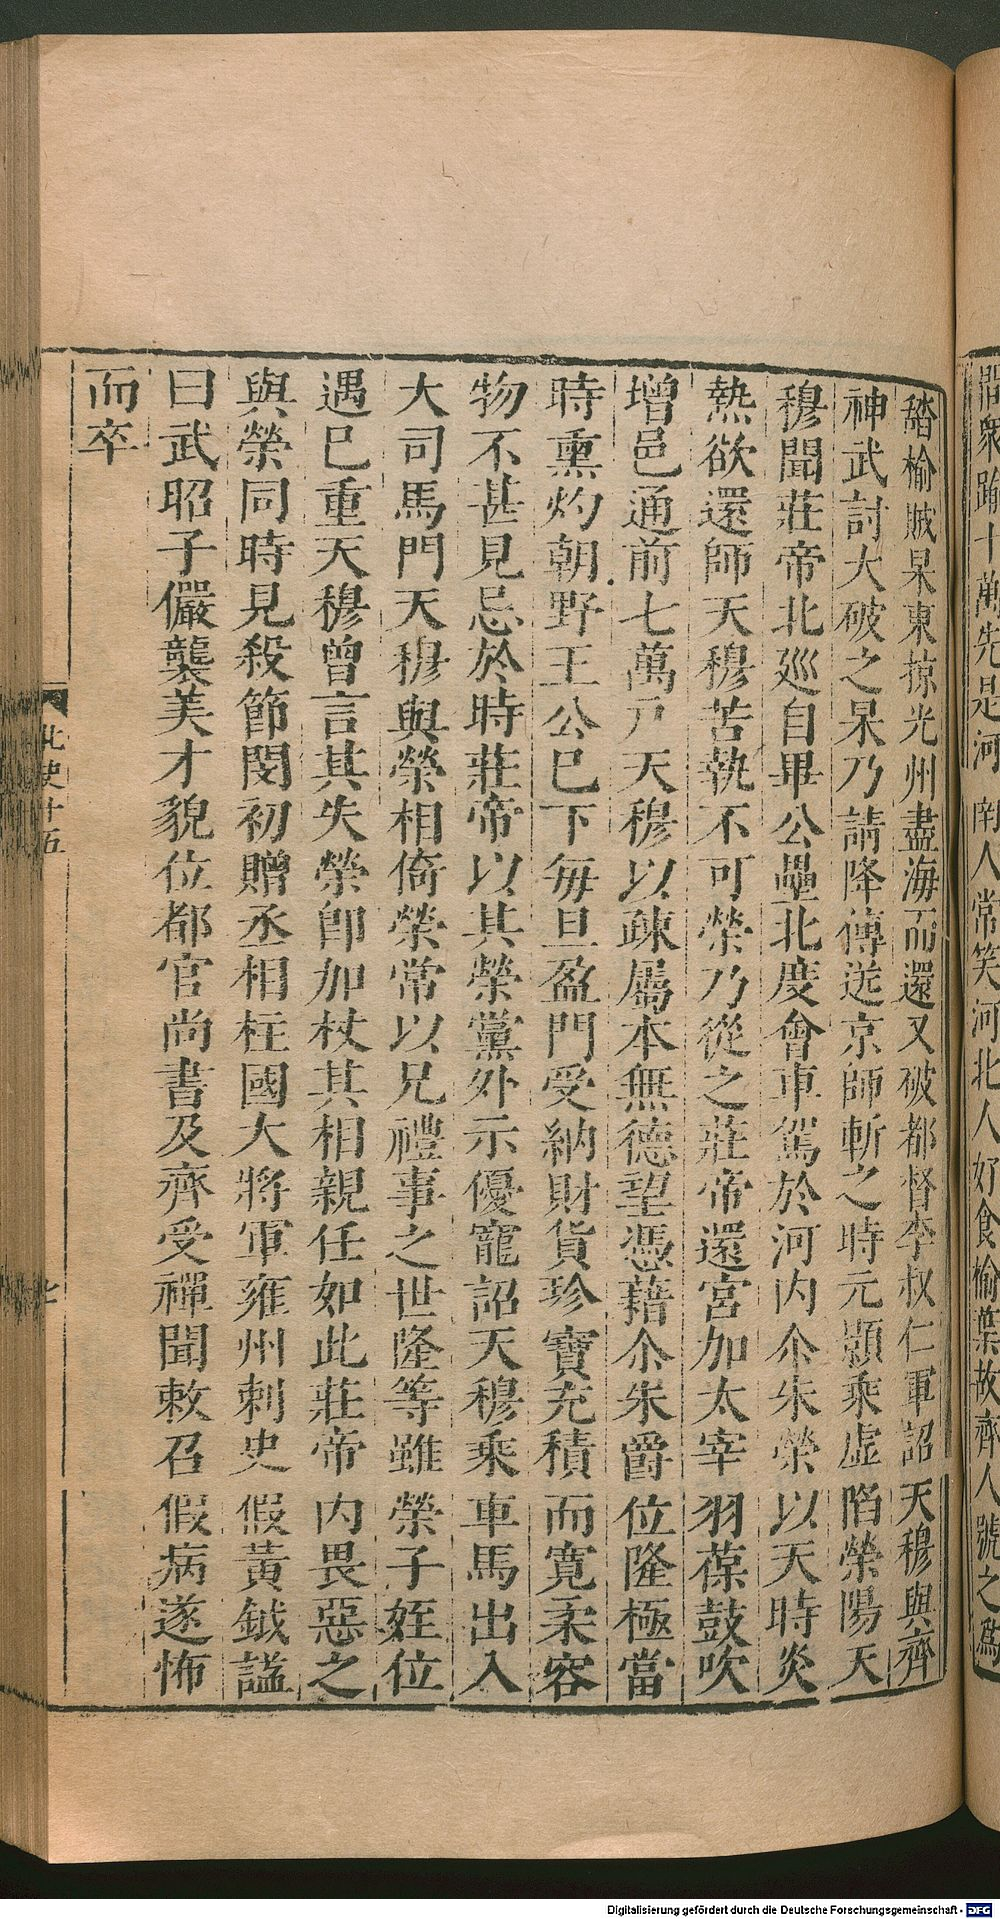 間衆踰十萬先是河南人常笑河北人好食榆葉故齊人號之爲
𧿇榆賊杲東掠光州盡海而還又破都督李叔仁軍詔天穆與齊
神武討大破之杲乃請降傳送京師斬之時元顥乘虛陷榮陽天
穆聞莊帝北廵自畢公壘北度會車駕於河內尒朱榮以天時炎
熱欲還師天穆苦執不可榮乃從之莊帝還宮加太宰羽葆鼓吹
增邑通前七萬戸天穆以疎屬本無德望憑藉尒朱爵位隆極當
時熏灼朝野王公巳下每旦盈門受納財貨珍寶充積而寛柔容
物不甚見忌於時莊帝以其榮黨外示優寵詔天穆乘車馬出入
大司馬門天穆與榮相倚榮常以兄禮事之世隆等雖榮子姪位
遇巳重天穆曾言其失榮卽加杖其相親任如此莊帝內畏惡之
與榮同時見殺節閔初贈丞相柱國大將軍雍州刺史假黃鉞諡
曰武昭子儼襲美才貌位都官尚書及齊受禪聞敕召假病遂怖
而卒
北史十五
七
Digitalisierung gefördert durch die Deutsche Forschungsgemeinschaft - DFG